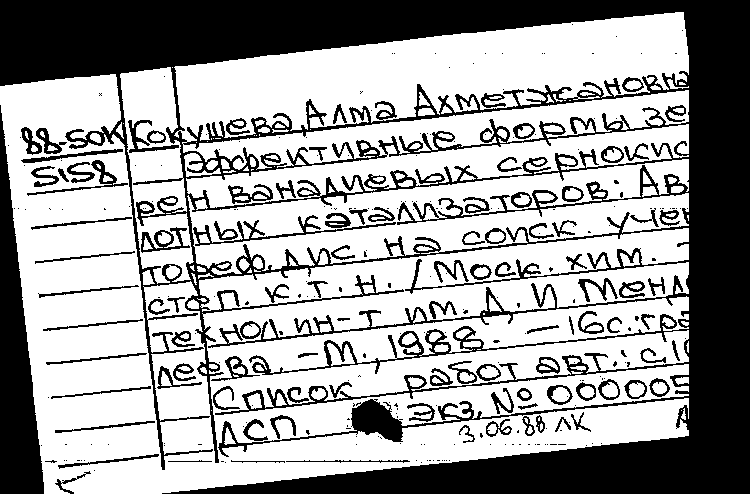 88-50К Кокушева, Алма Ахметжановна
5158 Эффективные формы зе
рен ванадиевых сернокис
лотных катализаторов: Ав
тореф. дис. на соиск. учен
степ. к.т.н. / Моск. хим. -
технол. ин-т им. Д.И. Менде
леева. -М., 1988. -16с.:гра
Список работ авт.: с.1
ДСП. Экз. № 000005
3.06.88 ЛК